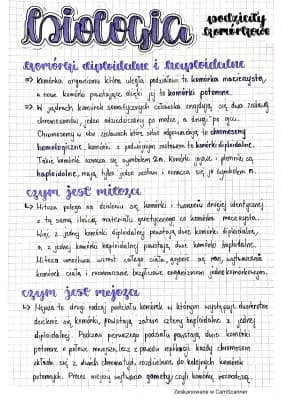 biologia
podziały
komórkowe
komórki diploidalne i haploidalne
⇒ Komórka organizmu która ulega podziałowi to komórka macierzysta,
a nowe komórki powstające dzięki jej to komórki potomne.
⇒ W jądrach komórek somatycznych człowieka znajdują się dwa zestawy
chromosomów, jeden odziedziczony po matce, a drugi po ojcu.
Chromosomy w obu zestawach które sobie odpowiadają to chromosomy
homologiczne. Komórki z podwójnym zestawem to komórki diploidalne.
Takie komórki oznacza się symbolem 2n. Komórki jajowe i plemniki są
haploidalne, mają tylko jeden zestaw i oznacza się je symbolem n.
czym jest mitoza
↳ Mitoza polega na dzieleniu się komórki i tworzeniu drugiej identycznej
z tą samą ilością materiału genetycznego co komórka macierzysta.
Więc z jednej komórki diploidalnej powstają dwie komórki diploidalne,
a z jednej komórki haploidalnej powstają dwie komórki haploidalne.
Mitoza umożliwia wzrost całego ciała, gojenie się ran, wytwarzanie
komórek ciała i rozmnażanie bezpłciowe organizmom jednokomórkowym.
czym jest mejoza
↳ Mejoza to drugi rodzaj podziału komórek w którym występuje dwukrotne
dzielenie się komórki, powstają zatem cztery haploidalne z jednej
diploidalnej. Podczas pierwszego podziału powstają dwie komórki
potomne o połowę mniejsze, lecz z powodu replikacji każdy chromosom
składa się z dwóch chromatyd, rozdzielane do kolejnych komórek
potomnych. Proces mejozy wytwarza gamety czyli komórki rozrodcze.
Zeskanowane w CamScanner